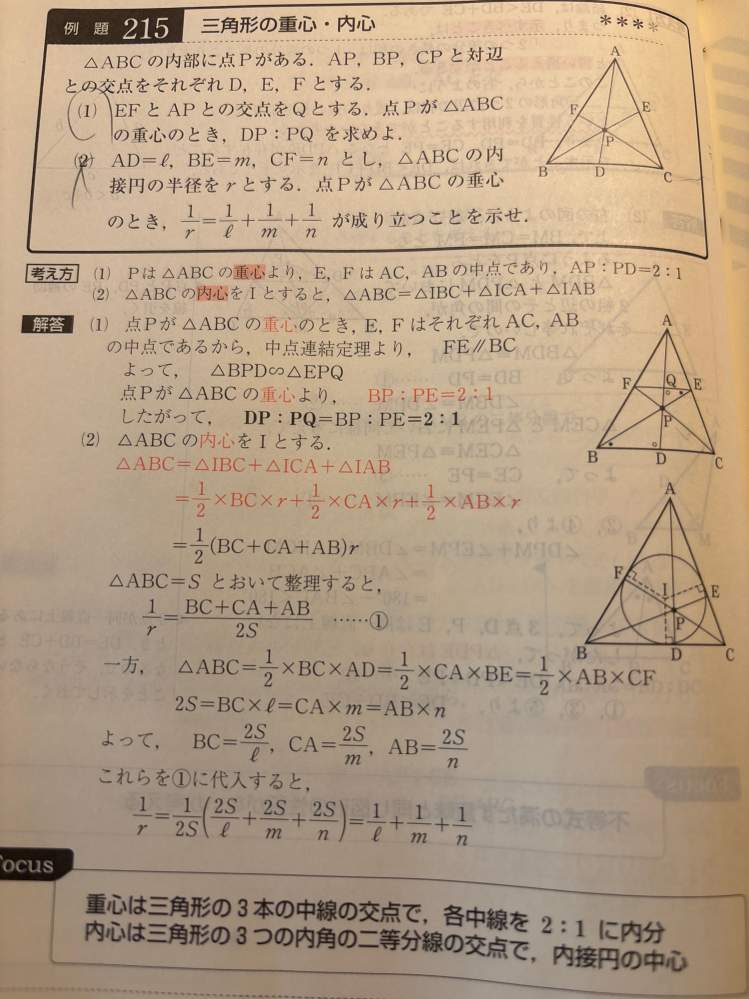 例題 215 三角形の重心・内心 ****
△ABC の内部に点Pがある．AP，BP，CP と対辺
との交点をそれぞれ D，E，F とする．
(1) EF と AP との交点をQとする．点Pが △ABC
の重心のとき，DP：PQ を求めよ．
(2) AD＝ℓ，BE＝m，CF＝n とし，△ABC の内
接円の半径を r とする．点Pが △ABC の垂心
のとき，1/r＝1/ℓ＋1/m＋1/n が成り立つことを示せ．
A
F
E
P
B
D
C
考え方 (1) Pは △ABC の重心より，E，F は AC，AB の中点であり，AP：PD＝2：1
(2) △ABC の内心を I とすると，△ABC＝△IBC＋△ICA＋△IAB
解答 (1) 点Pが △ABC の重心のとき，E，F はそれぞれ AC，AB
の中点であるから，中点連結定理より， FE∥BC
よって， △BPD∽△EPQ
点Pが △ABC の重心より， BP：PE＝2：1
したがって， DP：PQ＝BP：PE＝2：1
A
F
Q
E
P
B
D
C
(2) △ABC の内心を I とする．
△ABC＝△IBC＋△ICA＋△IAB
＝1/2×BC×r＋1/2×CA×r＋1/2×AB×r
＝1/2(BC＋CA＋AB)r
△ABC＝S とおいて整理すると，
1/r＝(BC＋CA＋AB)/2S ……①
A
F
E
I
P
B
D
C
一方， △ABC＝1/2×BC×AD＝1/2×CA×BE＝1/2×AB×CF
2S＝BC×ℓ＝CA×m＝AB×n
よって， BC＝2S/ℓ，CA＝2S/m，AB＝2S/n
これらを①に代入すると，
1/r＝1/2S(2S/ℓ＋2S/m＋2S/n)＝1/ℓ＋1/m＋1/n
Focus
重心は三角形の3本の中線の交点で，各中線を 2：1 に内分
内心は三角形の3つの内角の二等分線の交点で，内接円の中心